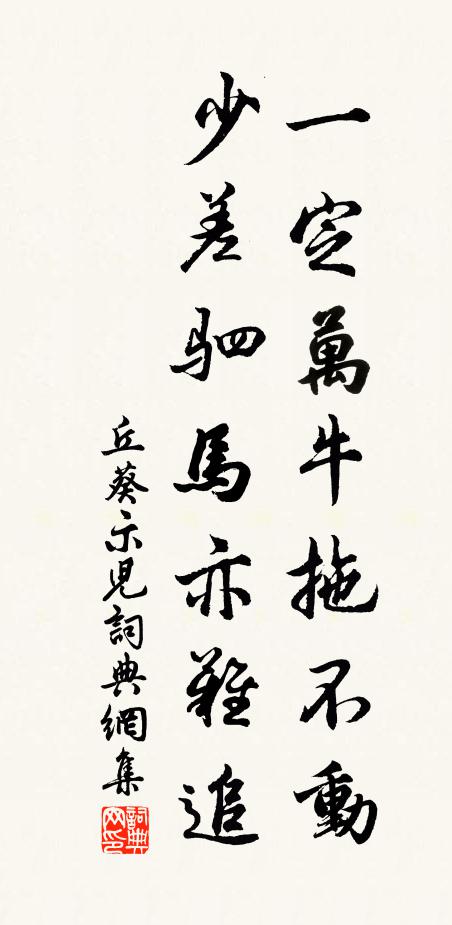 一定萬牛拖不動
少差駟馬亦難追
丘葵示兒詞典網集
詞典网印